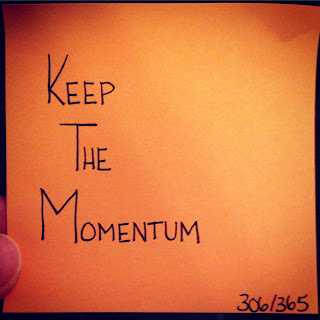 Keep
The
Momentum
306/365